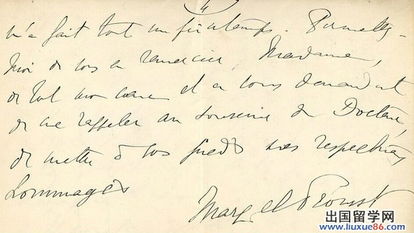 m'a fait tout un printemps. Permettez-
moi de vous en remercier, Madame,
de tout mon cœur et en vous demandant
de me rappeler au souvenir du Docteur,
de mettre à vos pieds mes respectueux
hommages
Marcel Proust
出国留学网
www.liuxue86.com